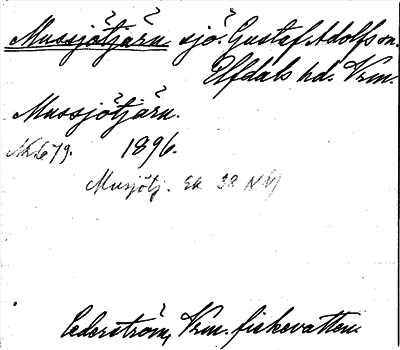 Mussjötjärn sjö. Gustaf Adolfs sn.
Elfdals hd. Vrm.
Mussjötjärn.
1896.
Musjötj. Ek 38 NV
Cederström, Vrm. fiskevatten